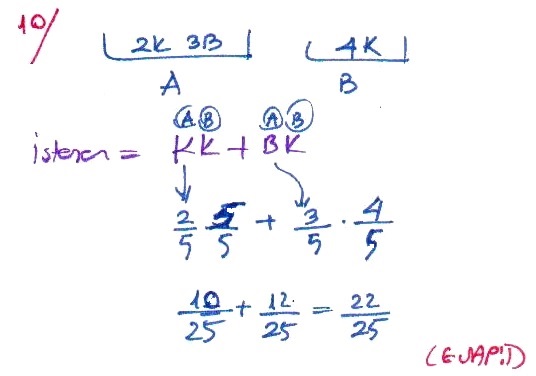 10/
2K 3B 4K
A B
A B A B
isteren = KK + BK
2/5 5/5 + 3/5 . 4/5
10/25 + 12/25 = 22/25
(CEVAP:)